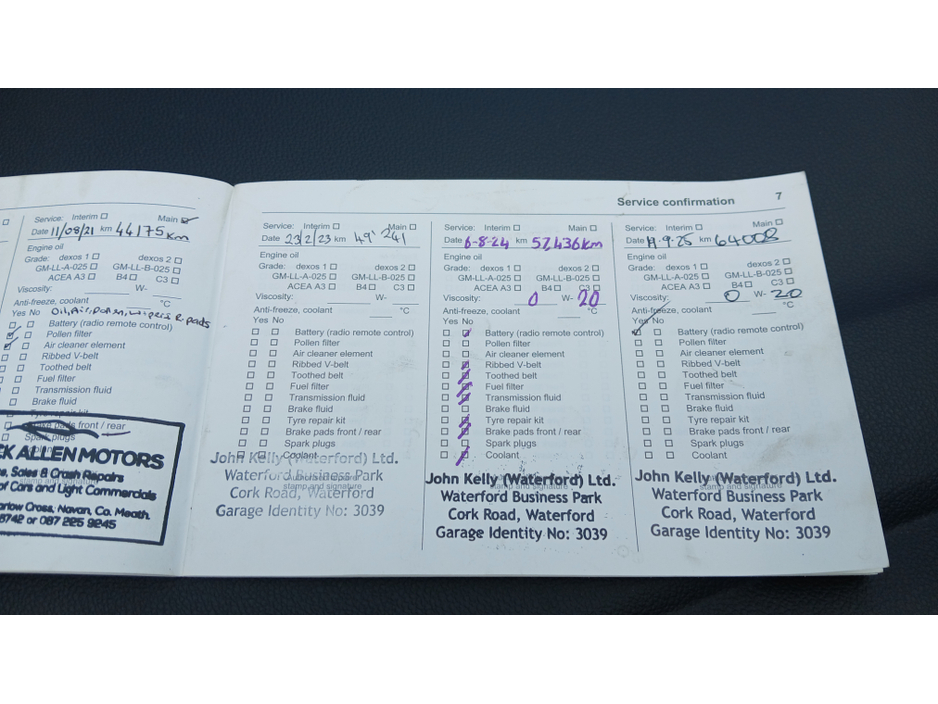 Service confirmation 7
Service: Interim Main
Date 11/08/21 km 44175 km
Engine oil
Grade: dexos 1 dexos 2
GM-LL-A-025 GM-LL-B-025
ACEA A3 C3
Viscosity: W-
Anti-freeze, coolant °C
Yes No Oil, Air, Pollen, wipers R. pads
Battery (radio remote control)
Pollen filter
Air cleaner element
Ribbed V-belt
Toothed belt
Fuel filter
Transmission fluid
Brake fluid
Tyre repair kit
Brake pads front / rear
Spark plugs
CK ALLEN MOTORS
Sales & Crash Repairs
of Cars and Light Commercials
Cross, Navan, Co. Meath.
8742 or 087 225 9245
Service: Interim Main
Date 23/2/23 km 49' 241
Engine oil
Grade: dexos 1 dexos 2
GM-LL-A-025 GM-LL-B-025
ACEA A3 B4 C3
Viscosity: W-
Anti-freeze, coolant °C
Yes No
Battery (radio remote control)
Pollen filter
Air cleaner element
Ribbed V-belt
Toothed belt
Fuel filter
Transmission fluid
Brake fluid
Tyre repair kit
Brake pads front / rear
Spark plugs
Coolant
John Kelly (Waterford) Ltd.
Waterford Business Park
Cork Road, Waterford
Garage Identity No: 3039
Service: Interim Main
Date 6-8-24 km 57,436km
Engine oil
Grade: dexos 1 dexos 2
GM-LL-A-025 GM-LL-B-025
ACEA A3 B4 C3
Viscosity: 0 W- 20
Anti-freeze, coolant °C
Yes No
Battery (radio remote control)
Pollen filter
Air cleaner element
Ribbed V-belt
Toothed belt
Fuel filter
Transmission fluid
Brake fluid
Tyre repair kit
Brake pads front / rear
Spark plugs
Coolant
stamp and signature
John Kelly (Waterford) Ltd.
Waterford Business Park
Cork Road, Waterford
Garage Identity No: 3039
Service: Interim Main
Date 9-25 km 64008
Engine oil
Grade: dexos 1 dexos 2
GM-LL-A-025 GM-LL-B-025
ACEA A3 B4 C3
Viscosity: 0 W- 20
Anti-freeze, coolant °C
Yes No
Battery (radio remote control)
Pollen filter
Air cleaner element
Ribbed V-belt
Toothed belt
Fuel filter
Transmission fluid
Brake fluid
Tyre repair kit
Brake pads front / rear
Spark plugs
Coolant
stamp and signature
John Kelly (Waterford) Ltd.
Waterford Business Park
Cork Road, Waterford
Garage Identity No: 3039